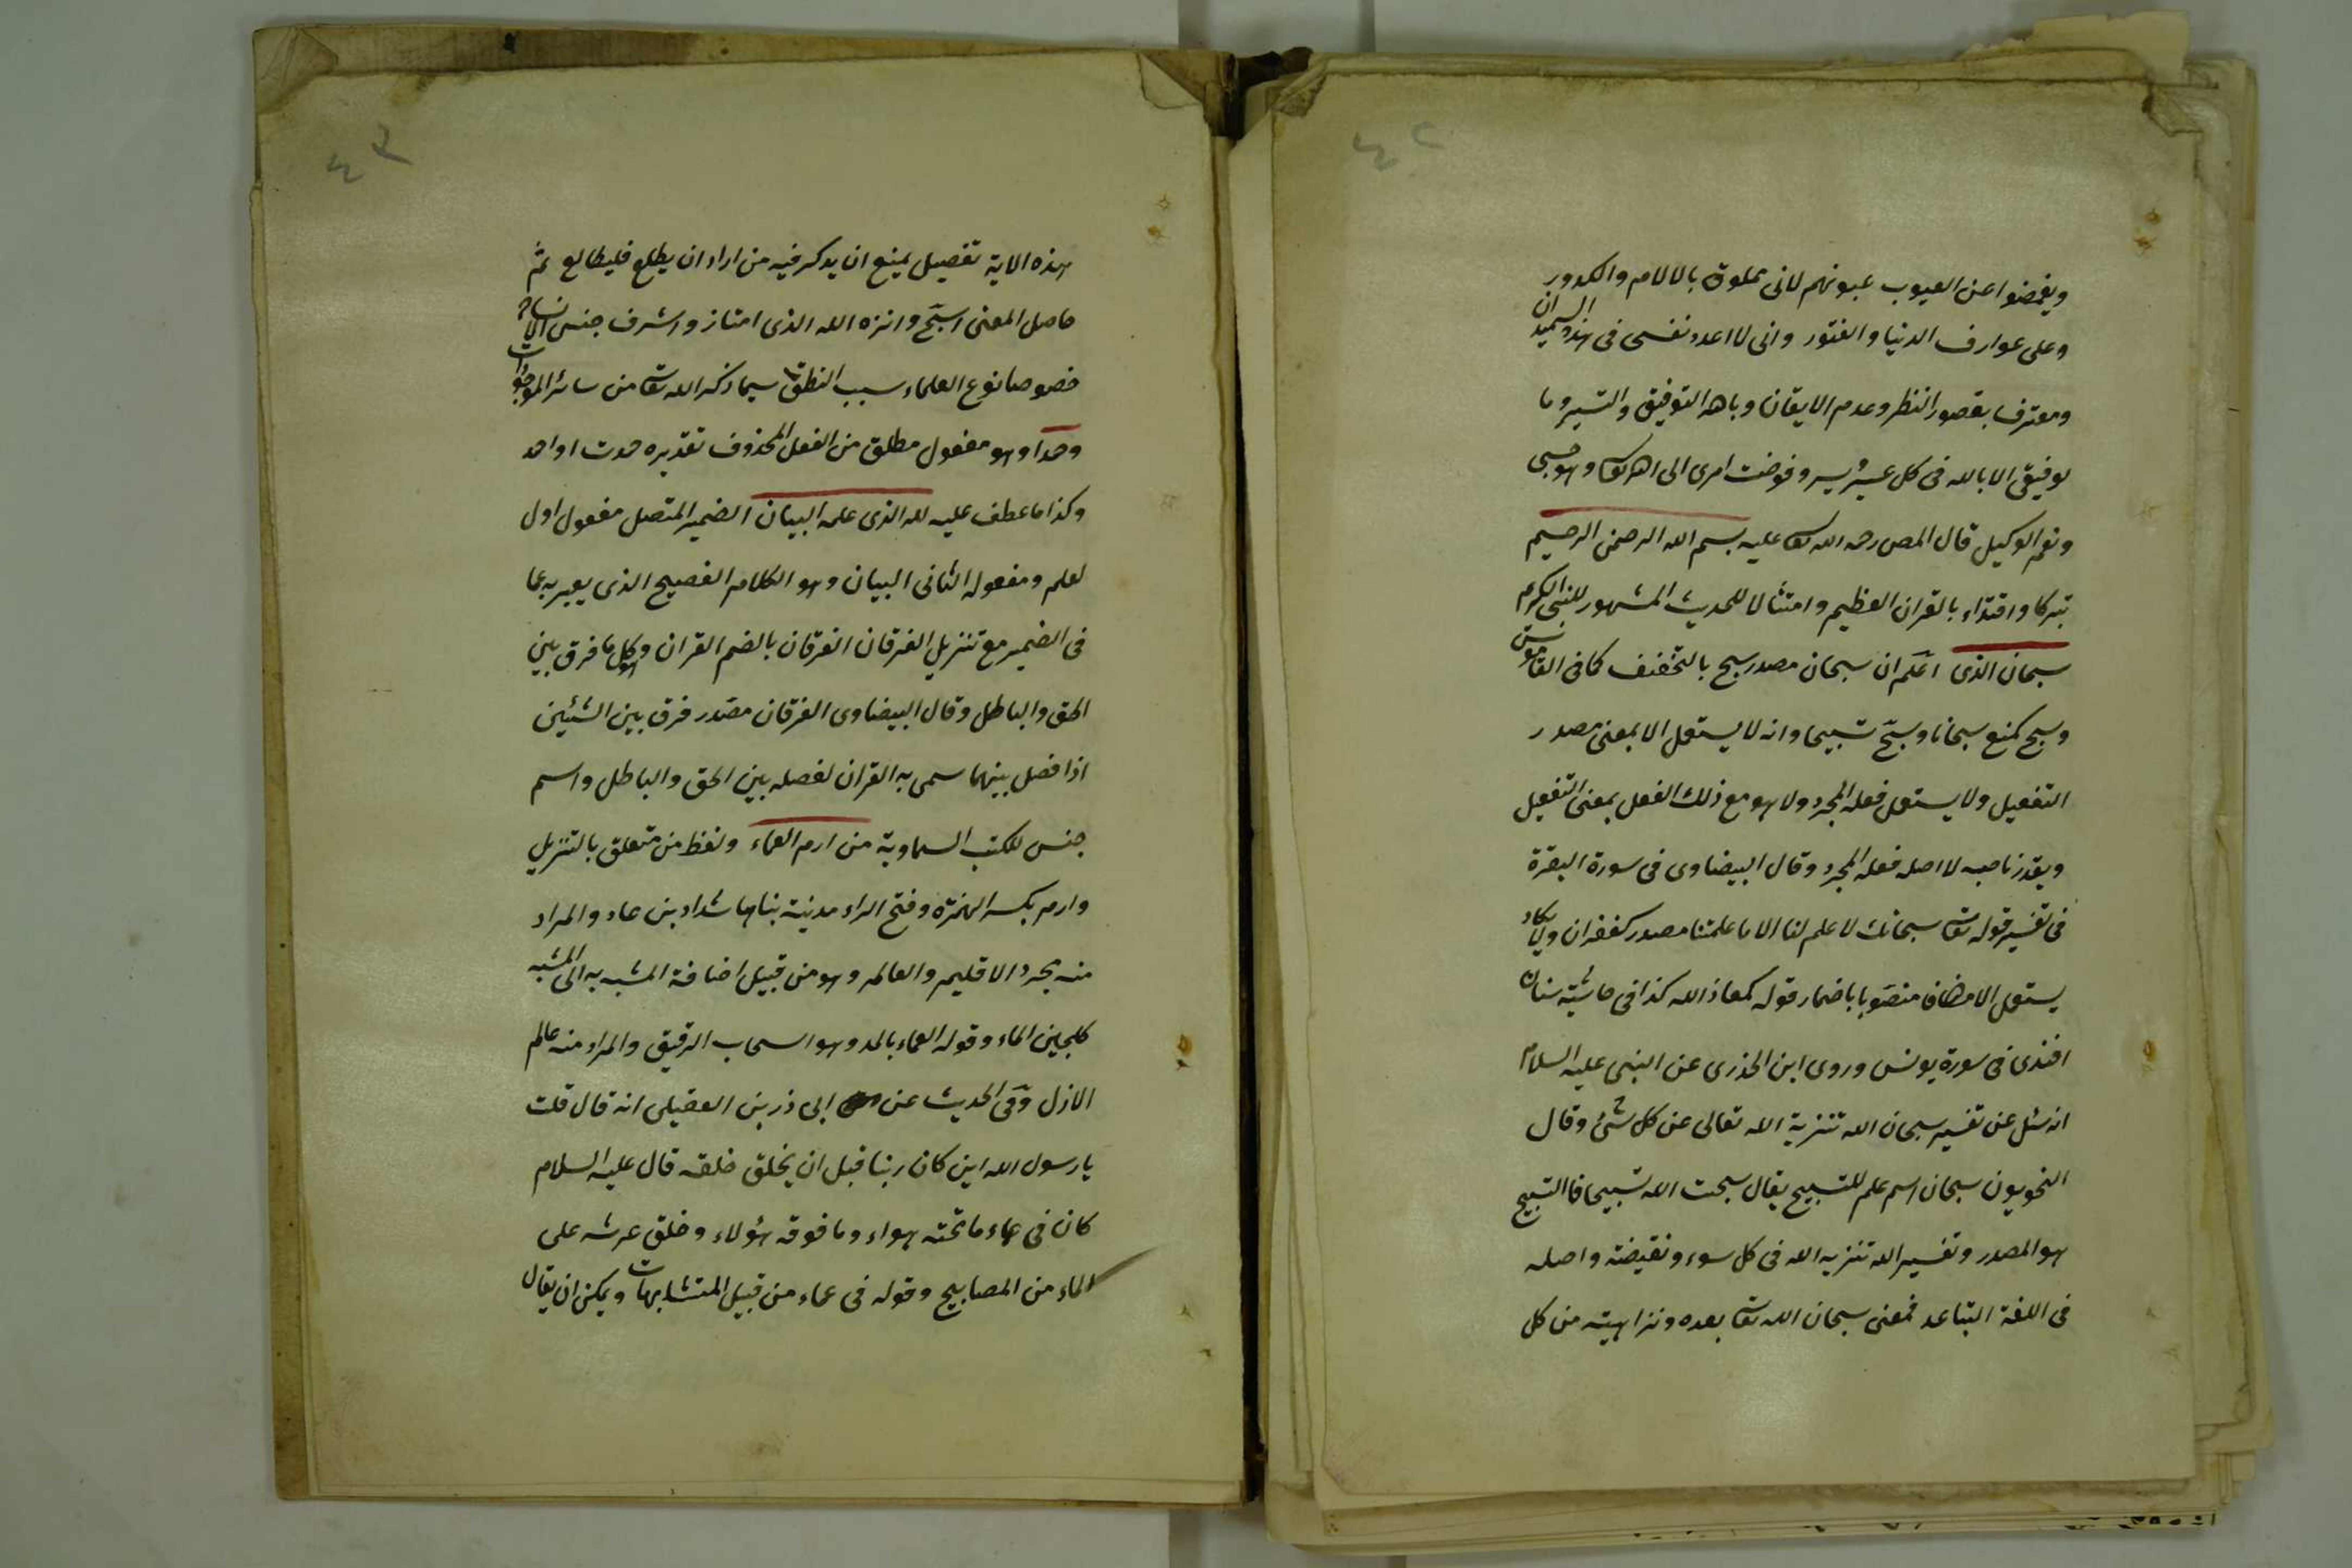 ٤٢
ويغمضوا عن العيوب عيونهم لانى مملوة بالالام والكدور
وعلى عوارف الدنيا والفتور وانى لا اعد نفسى فى هذه الميدان
ومعترف بقصور النظر وعدم الايقان وباهد التوفيق والتيسير وما
توفيقى الا بالله فى كل عسير ويسير وفوضت امرى الى الله تعا وهو حسبى
ونعم الوكيل قال المص رحمه الله تعا عليه بسم الله الرحمن الرحيم
تبركا واقتداء بالقران العظيم وامتثالا للحديث المشهور للنبى الكريم
سبحان الذى اعلم ان سبحان مصدر سبح بالتخفيف كما فى القاموس
وسبح كمنع سبحانا وسبّح تسبيحا وانه لا يستعمل الا بمعنى مصدر
التفعيل ولا يستعمل فعله المجرد ولا هو مع ذلك الفعل بمعنى التفعيل
ويقدر ناصبه لا اصله فعله المجرد وقال البيضاوى فى سورة البقرة
فى تفسير قوله تعا سبحانك لا علم لنا الا ما علمتنا مصدر كغفران ولا يكاد
يستعمل الا مضافا منصوبا باضمار قوله كمعاذ الله كذا فى حاشية سنان
افندى فى سورة يونس وروى ابن الجذرى عن النبى عليه السلام
انه سئل عن تفسير سبحان الله تنزية الله تعالى عن كل شئ وقال
النحويون سبحان اسم علم للتسبيح يقال سبحت الله تسبيحا فالتسبيح
هو المصدر وتفسير الله تنزيه الله فى كل سوء ونقيضة واصله
فى اللغة التباعد فمعنى سبحان الله تعا بعده ونزاهيته من كل
٤٣
هذه الاية تفصيل يمنع ان يدكر فيه من اراد ان يطلع فليطالع ثم
حاصل المعنى اسبّح وانزه الله الذى امتاز واشرف جنس الانسان
خصوصا نوع العلماء سبب النطق سيما ذكر الله تعا من سائر الموجودات
وحمدا وهو مفعول مطلق من الفعل المحذوف تقديره حمدت او احمد
وكذا ما عطف عليه لله الذى علمه البيان الضمير المتصل مفعول اول
لعلم ومفعوله الثانى البيان وهو الكلام الفصيح الذى يعبر به عما
فى الضمير مع تنزيل الفرقان الفرقان بالضم القران وكل ما فرق بين
الحق والباطل وقال البيضاوى الفرقان مصدر فرق بين الشئين
اذا فصل بينهما سمى به القران لفصله بين الحق والباطل واسم
جنس للكتب السماوية من ارم العماء ولفظ من متعلق بالتنزيل
وارم بكسر الهمزة وفتح الراء مدنية بناها شداد بن عاد والمراد
منه مجرد الاقليم والعالم وهو من قبيل اضافة المشبه به الى المشبه
كلجين الماء وقوله العماء بالمد وهو السحاب الرقيق والمراد منه عالم
الازل وفى الحديث عن ابى ذر بن العقيلى انه قال قلت
يا رسول الله اين كان ربنا قبل ان يخلق خلقه قال عليه السلام
كان فى عماء ما تحته هواء وما فوقه هؤلاء وخلق عرشه على
الماء من المصابيح وقوله فى عماء من قبيل المتشابهات ويمكن ان يقال